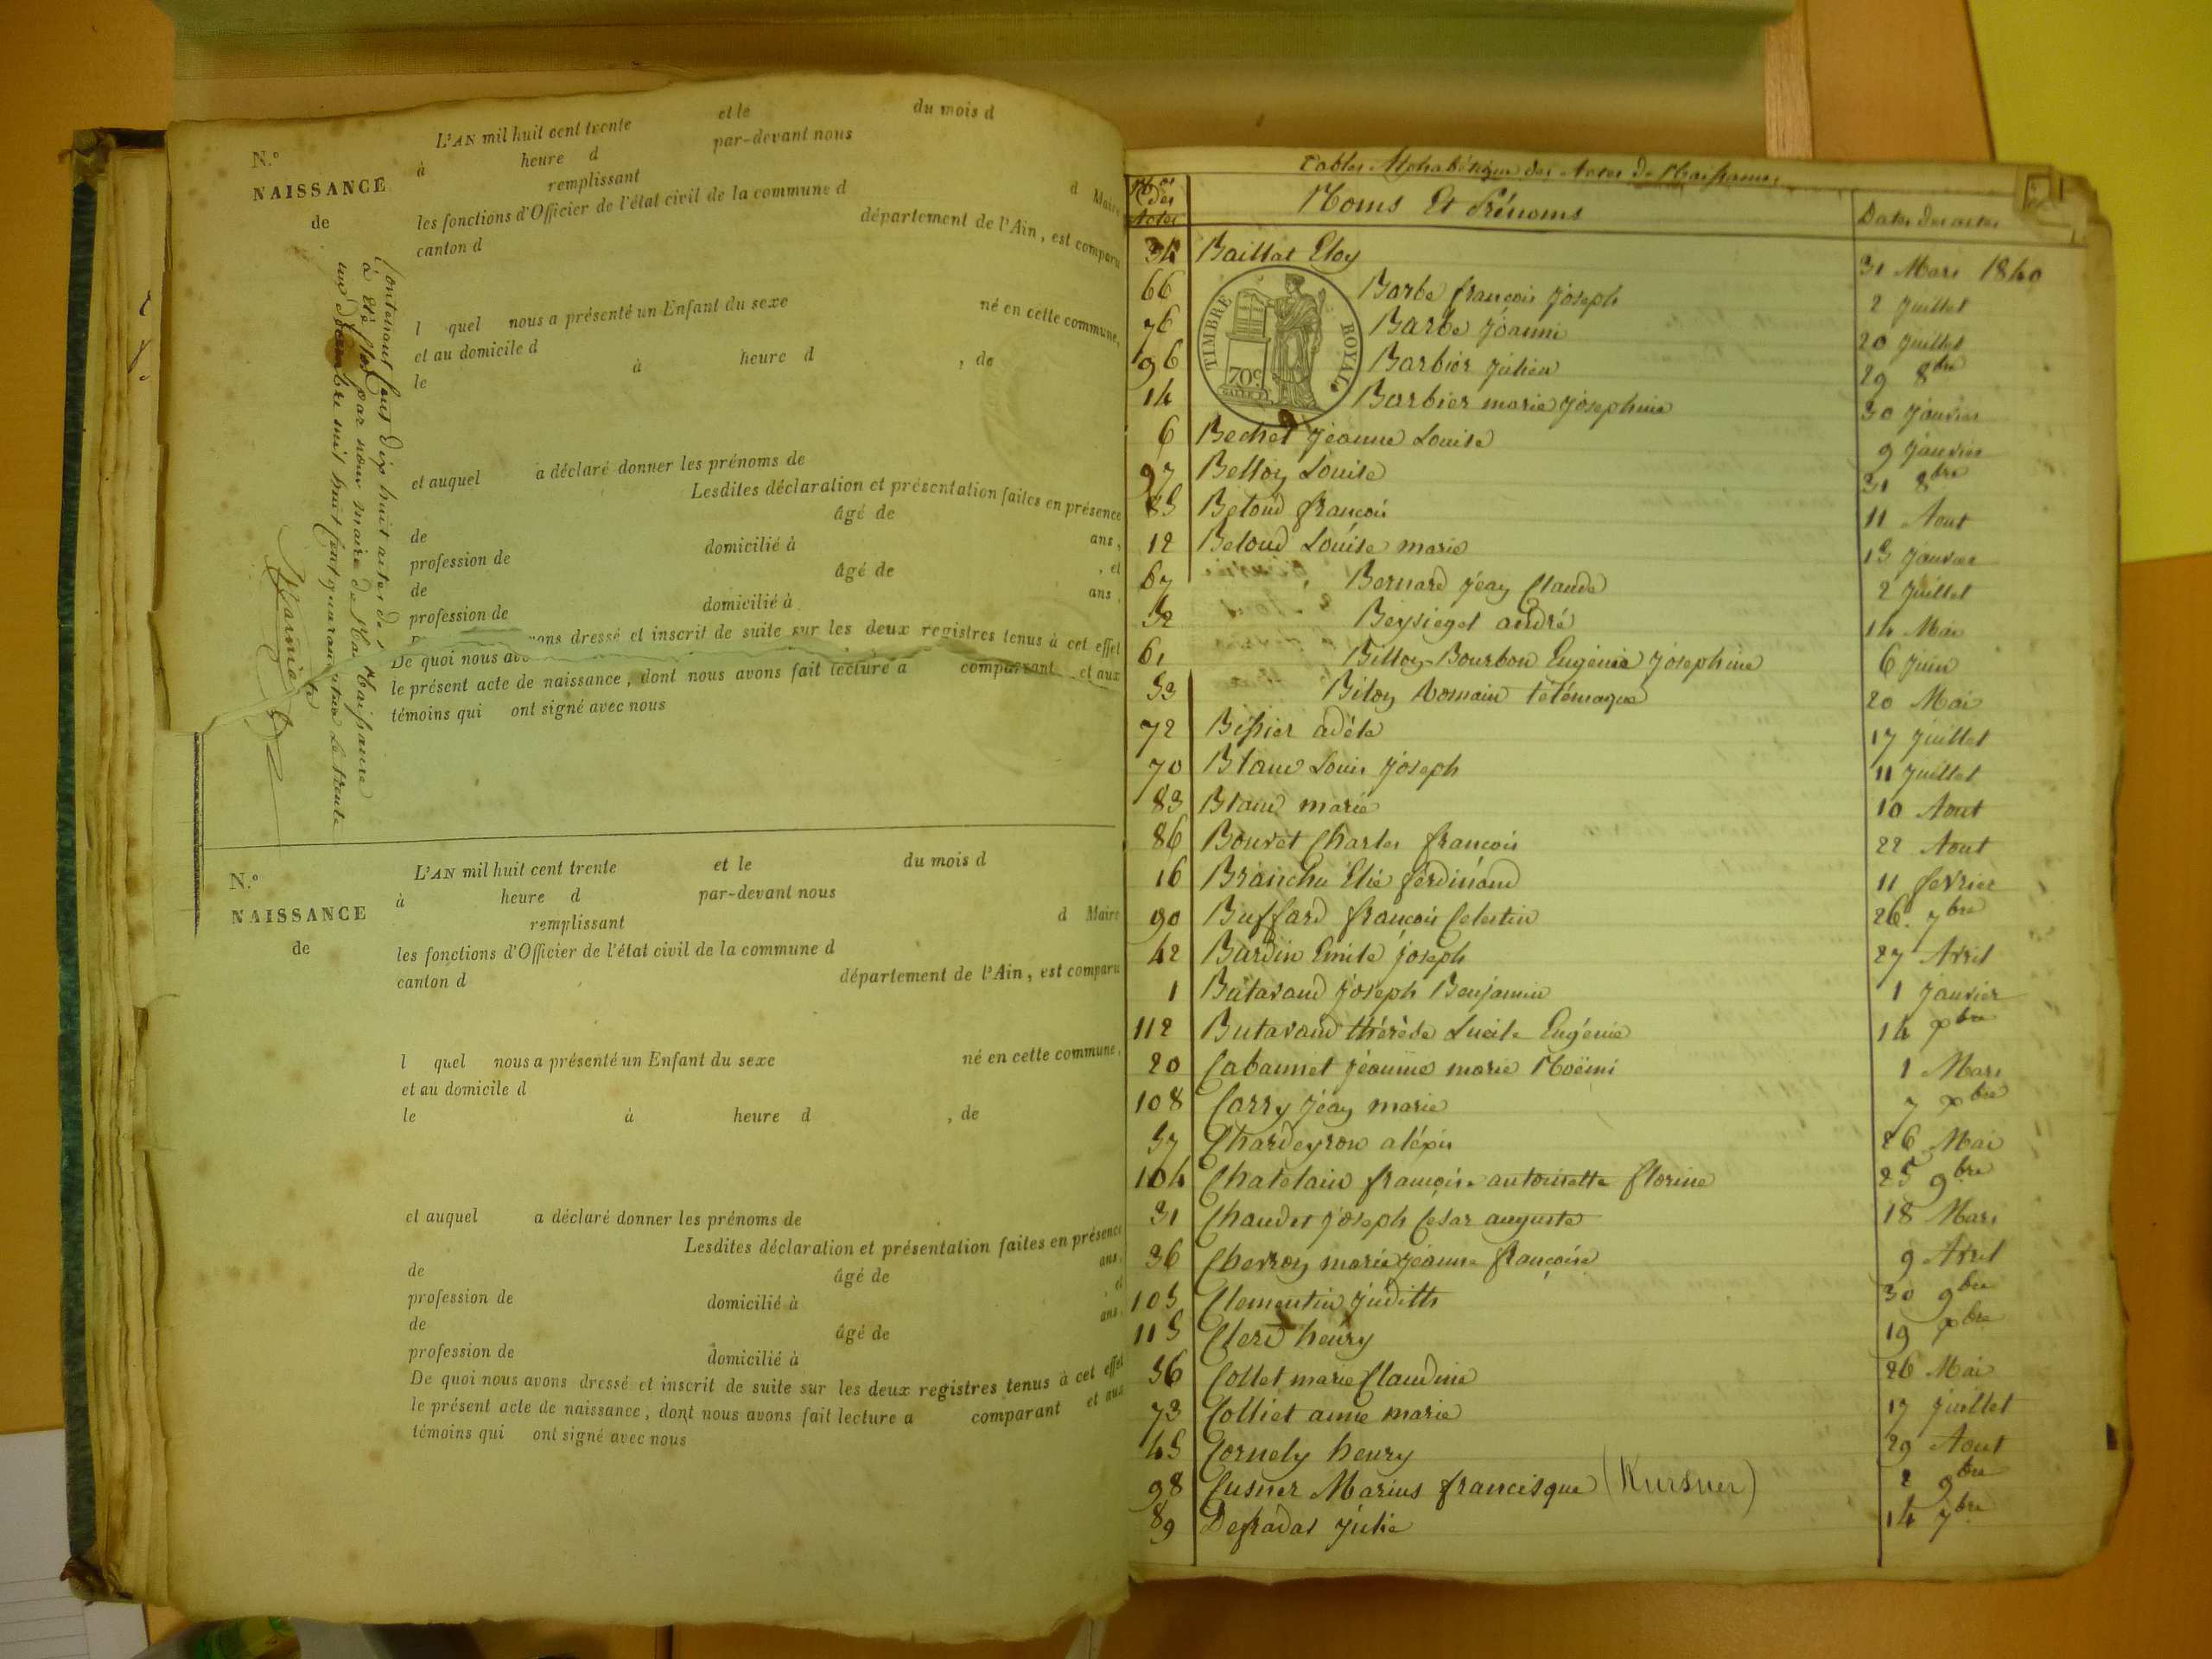 N.º
NAISSANCE
de
L'AN mil huit cent trente et le du mois d
à heure d par-devant nous
remplissant d Maire
les fonctions d'Officier de l'état civil de la commune d
canton d département de l'Ain, est comparu
l quel nous a présenté un Enfant du sexe né en cette commune,
et au domicile d
le à heure d , de
et auquel a déclaré donner les prénoms de
Lesdites déclaration et présentation faites en présence
de âgé de ans,
profession de domicilié à , et
de âgé de ans,
profession de domicilié à
De quoi nous avons dressé et inscrit de suite sur les deux registres tenus à cet effet
le présent acte de naissance, dont nous avons fait lecture a comparant et aux
témoins qui ont signé avec nous
Contenant Cent dix huit actes de Naissance
à été clos par nous maire de le trente
un décembre mil huit cent quarante
N.º
NAISSANCE
de
L'AN mil huit cent trente et le du mois d
à heure d par-devant nous
remplissant d Maire
les fonctions d'Officier de l'état civil de la commune d
canton d département de l'Ain, est comparu
l quel nous a présenté un Enfant du sexe né en cette commune,
et au domicile d
le à heure d , de
et auquel a déclaré donner les prénoms de
Lesdites déclaration et présentation faites en présence
de âgé de ans,
profession de domicilié à , et
de âgé de ans,
profession de domicilié à
De quoi nous avons dressé et inscrit de suite sur les deux registres tenus à cet effet
le présent acte de naissance, dont nous avons fait lecture a comparant et aux
témoins qui ont signé avec nous
Tables Alphabétique des Actes de Naissances
Nos des Actes Noms Et Prénoms Dates des actes
TIMBRE ROYAL
70c
34 Baillat Eloy 31 Mars 1840
66 Barbe francois joseph 2 juillet
76 Barbe jéanni 20 juillet
96 Barbier julien 29 8bre
14 Barbier marie josephine 30 janvier
6 Bechet jéanne Louise 9 janvier
97 Belloy Louise 31 8bre
85 Beloud francois 11 Aout
12 Beloud Louise marie 13 janvier
67 Bernard jéan Claude 2 juillet
52 Beysieget andré 14 Mai
61 Billoy-Bourbon Eugénie josephine 6 juin
53 Biloy Romain télémaque 20 Mai
72 Bissier adéle 17 juillet
70 Blanc Louis joseph 11 juillet
83 Blanc marie 10 Aout
86 Bouvet Charles francois 22 Aout
16 Branchu Elie ferdinand 11 fevrier
90 Buffard francois Celestin 26 7bre
42 Bardin Emile joseph 27 Avril
1 Butavand joseph Benjamin 1 janvier
112 Butavand thérèse Lucile Eugénie 14 xbre
20 Cabannet jéanne marie Noëmi 1 Mars
108 Carry jéan marie 7 xbre
57 Chardeyron aléxis 26 Mai
104 Chatelain francoise antoinette florine 25 9bre
31 Chaudet joseph Cesar auguste 18 Mars
36 Cherroy marie jeanne françoise 9 Avril
105 Clementin judith 30 9bre
115 Clerd henry 19 xbre
56 Collet marie Claudine 26 Mai
73 Colliet anne marie 17 juillet
45 Cornely henry 29 Aout
98 Cusner Marius francisque (Kursner) 2 9bre
89 Defradat julie 14 7bre